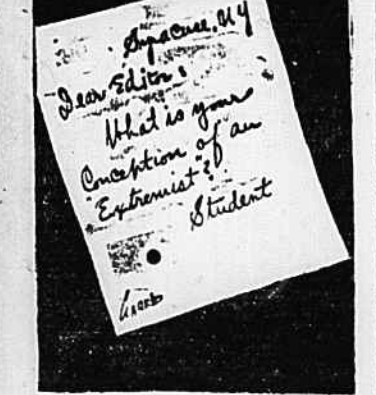 Syracuse, N Y
Dear Editor:
What is your
Conception of an
"Extremist"?
Student